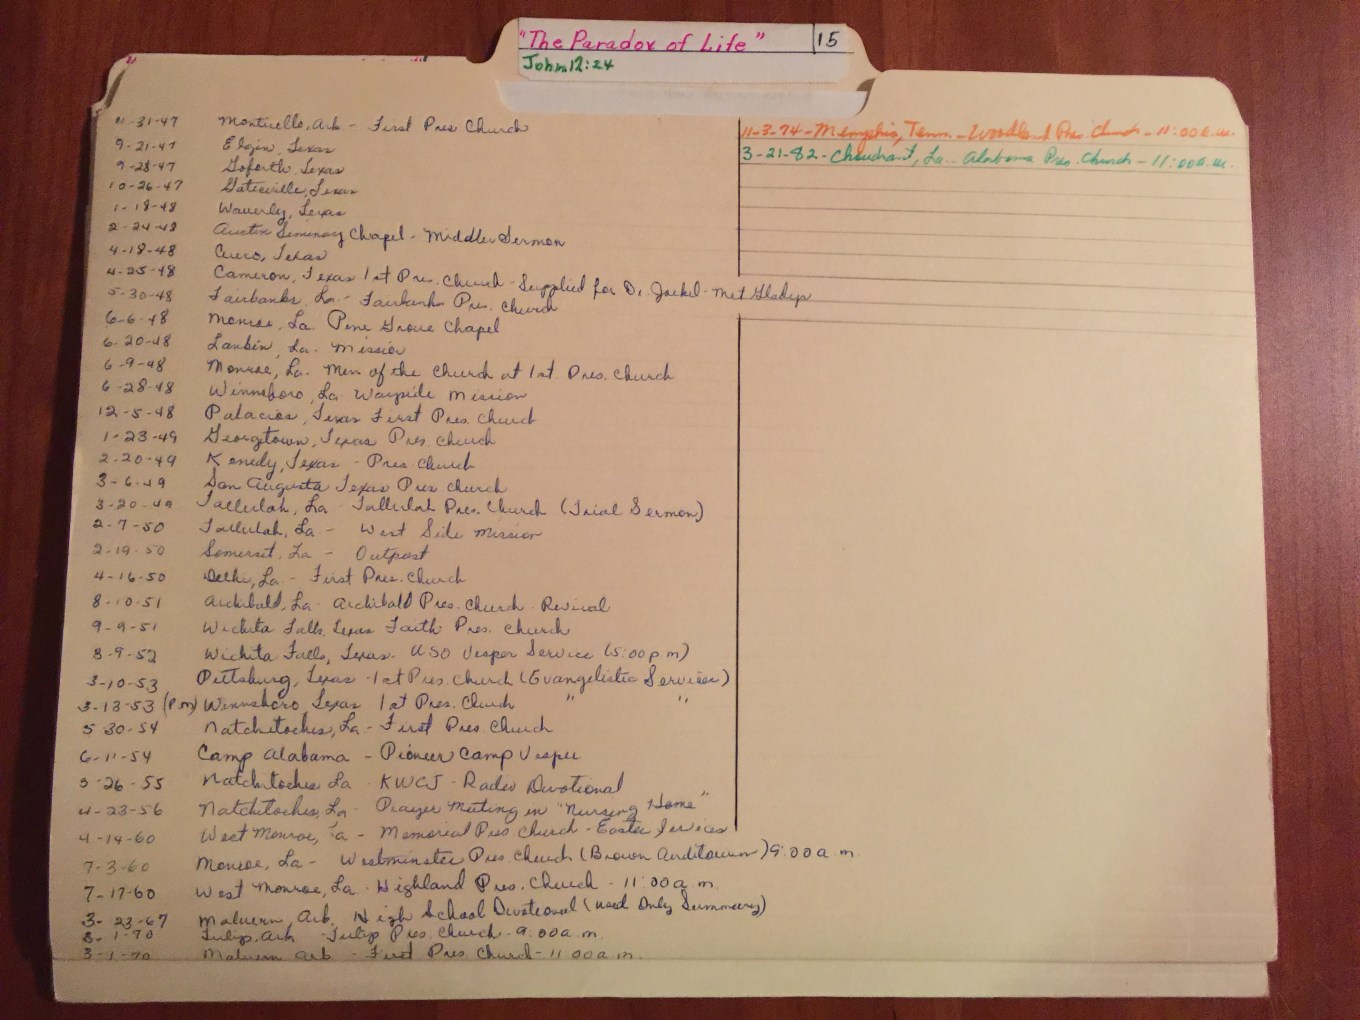 "The Paradox of Life" 15
John 12:24
11-31-47 Monticello, Ark - First Pres Church
9-21-47 Elgin, Texas
9-28-47 Goforth, Texas
10-26-47 Gatesville, Texas
1-18-48 Waverly, Texas
2-24-48 Austin Seminary Chapel - Middler Sermon
4-18-48 Cuero, Texas
4-25-48 Cameron, Texas 1st Pres. Church - Supplied for Dr. Jackel - Met Gladys
5-30-48 Fairbanks, La. - Fairbanks Pres. Church
6-6-48 Monroe, La. Pine Grove Chapel
6-20-48 La. Mission
6-9-48 Monroe, La. Men of the Church at 1st. Pres. Church
6-28-48 Winnsboro, La Wayside Mission
12-5-48 Palacios, Texas First Pres. Church
1-23-49 Georgtown, Texas Pres. Church
2-20-49 Kenedy, Texas - Pres. Church
3-6-49 San Augusta Texas Pres Church
3-20-49 Tallulah, La - Tallulah Pres. Church (Trial Sermon)
2-7-50 Tallulah, La. - West Side Mission
2-19-50 Somerset, La - Outpost
4-16-50 Delhi, La - First Pres. Church
8-10-51 Archibald, La - Archibald Pres. Church - Revival
9-9-51 Wichita Falls, Texas Faith Pres. Church
8-9-52 Wichita Falls, Texas - USO Vesper Service (5:00 p m)
3-10-53 Pittsburg, Texas - 1st Pres. Church (Evangelistic Services)
3-13-53 (P.m) Winnsboro Texas 1st Pres. Church " "
5 30-54 Natchitoches, La - First Pres Church
6-11-54 Camp Alabama - Pioneer Camp Vesper
3-26-55 Natchitoches La - KWCJ - Radio Devotional
4-23-56 Natchitoches, La - Prayer Meeting in "Nursing Home"
4-14-60 West Monroe, La - Memorial Pres Church - Easter Services
7-3-60 Monroe, La - Westminster Pres. Church (Brown Auditorium) 9:00 a m.
7-17-60 West Monroe, La - Highland Pres. Church - 11:00 a. m.
3-23-67 Malvern, Ark. High School Devotional (used Only Summary)
3-1-70 Tulip, Ark - Tulip Pres. Church - 9:00 a. m.
3-1-70 Malvern Ark - First Pres Church - 11:00 a. m.
11-3-74 - Memphis, Tenn. - Pres. Church - 11:00 a.m.
3-21-82 - Choudrant, La. Alabama Pres. Church - 11:00 a.m.